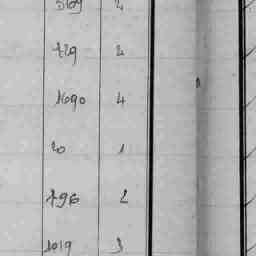 569 2
129 2
1090 4
20 1
196 2
1019 3